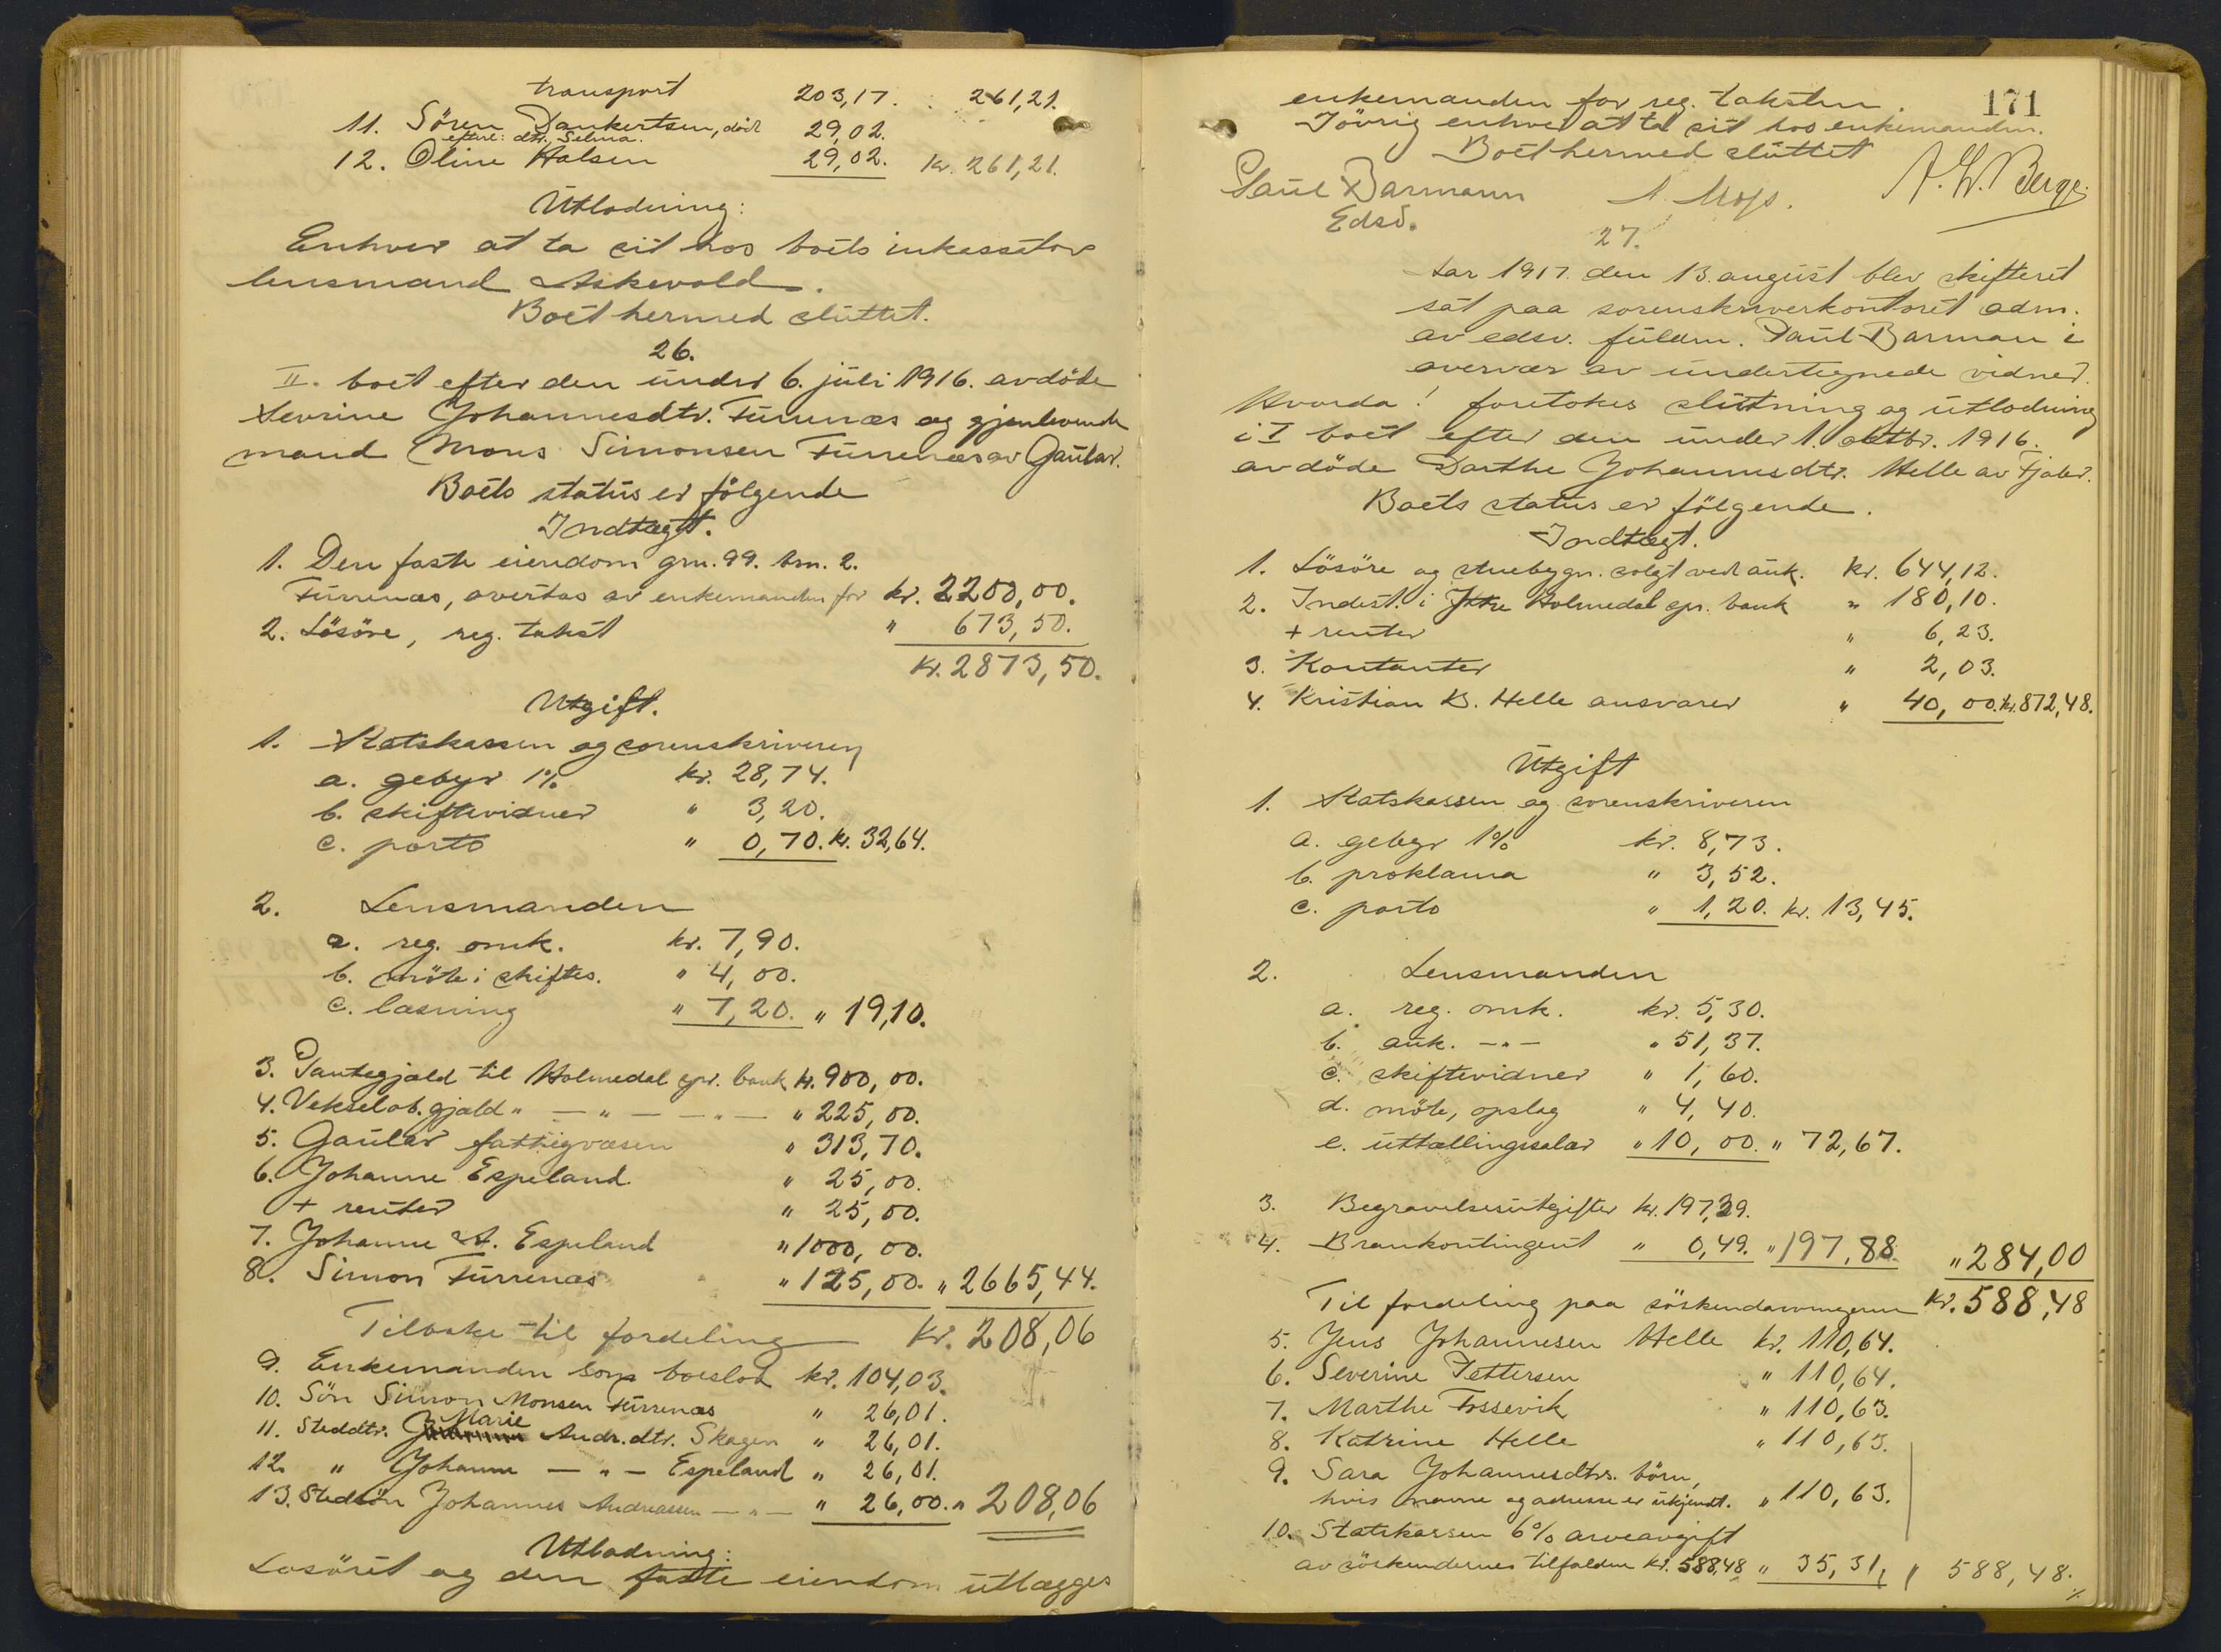 transport 203,17. 261,21.
11. Sören Dankertsen, död 29,02.
efterl: dtr. Selma.
12. Oline Halsen 29,02. Kr. 261,21.
Utlodning:
Enhver at ta sit hos boets inkassator
lensmand Askevold.
Boet hermed sluttet.
26.
II. boet efter den under 6. juli 1916. avdöde
Sevrine Johannesdtr. Furrenæs og gjenlevende
mand Mons Simonsen Furrenæs av Gaular.
Boets status er følgende
Indtægt.
1. Den faste eiendom grn. 99. brn. 2.
Furrenæs, overtas av enkemanden for kr. 2200,00.
2. Lösöre, reg. takst " 673,50.
Kr. 2873,50.
Utgift.
1. Statskassen og sorenskriveren
a. gebyr 1% kr. 28,74.
b. skiftevidner " 3,20.
c. porto " 0,70. kr. 32,64.
2. Lensmanden
a. reg. omk. kr. 7,90.
b. möte i skiftes. " 4,00.
c. læsning " 7,20. " 19,10.
3. Pantegjæld til Holmedal spr. bank kr. 900,00.
4. Vekselob. gjæld " — " — — " — " 225,00.
5. Gaular fattigvæsen " 313,70.
6. Johanne Espeland " 25,00.
+ renter " 25,00.
7. Johanne A. Espeland " 1000,00.
8. Simon Furrenæs " 125,00. " 2665,44.
Tilbake til fordeling Kr. 208,06
9. Enkemanden som boeslod kr. 104,03.
10. Sön Simon Monsen Furrenæs " 26,01.
11. Steddtr. Marie Andr. dtr. Skagen " 26,01.
12. " Johanne — " — Espeland " 26,01.
13. Stedsön Johannes Andreassen — " — " 26,00. " 208,06
Utlodning:
Lösöret og den faste eiendom utlægges
171
enkemanden for reg. taksten.
Iövrig enhver at ta sit hos enkemanden.
Boet hermed sluttet
Paul Barmann A. W. Berge
Edsv.
27.
Aar 1917. den 13. august blev skifteret
sat paa sorenskriverkontoret adm.
av edsv. fuldm. Paul Barman i
overvær av undertegnede vidner.
Hvorda! foretokes slutning og utlodning
i I boet efter den under 1. oktbr. 1916.
avdöde Darthe Johannesdtr. Helle av Fjaler.
Boets status er følgende.
Indtægt.
1. Lösöre og stuebygn. solgt ved auk. kr. 644,12.
2. Indest. i Ytre Holmedal spr. bank " 180,10.
+ renter " 6,23.
3. Kontanter " 2,03.
4. Kristian K. Helle ansvarer " 40,00. kr. 872,48.
Utgift
1. Statskassen og sorenskriveren
a. gebyr 1% kr. 8,73.
b. proklama " 3,52.
c. porto " 1,20. kr. 13,45.
2. Lensmanden
a. reg. omk. kr. 5,30.
b. auk. — " — " 51,37.
c. skiftevidner " 1,60.
d. möte, opslag " 4,40.
e. uttællingssalær " 10,00. " 72,67.
3. Begravelsesutgifter kr. 197,39.
4. Brankontingent " 0,49. " 197,88 " 284,00
Til fordeling paa söskendarvingerne Kr. 588,48
5. Jens Johannesen Helle kr. 110,64.
6. Severine Pettersen " 110,64.
7. Marthe Fossevik " 110,63.
8. Katrine Helle " 110,63.
9. Sara Johannesdtrs. börn,
hvis navne og adresse er ukjendt. " 110,63.
10. Statskassen 6% arveavgift
av söskendernes tilfaldne kr. 588,48 " 35,31, " 588,48.